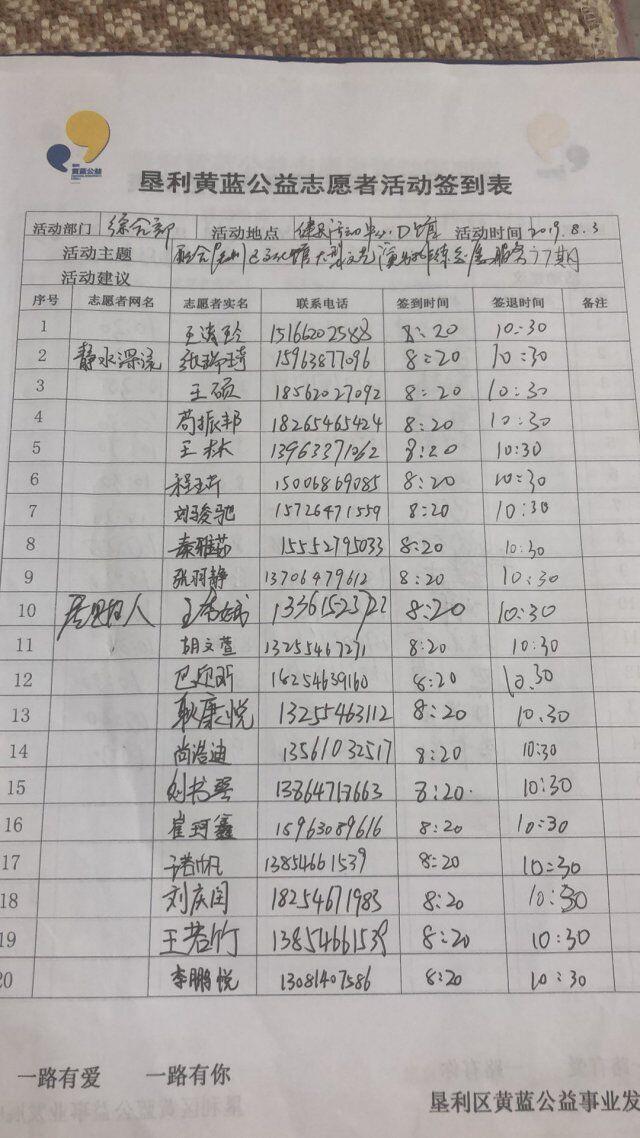 黄蓝公益
垦利黄蓝公益志愿者活动签到表
活动部门 综合部 活动地点 活动时间 2019.8.3
活动主题 77期
活动建议
序号 志愿者网名 志愿者实名 联系电话 签到时间 签退时间 备注
1 15166202588 8:20 10:30
2 静水深流 张瑞琦 15963877096 8:20 10:30
3 王硕 18562027092 8:20 10:30
4 苟振邦 18265465424 8:20 10:30
5 王林 13963371262 8:20 10:30
6 15006869085 8:20 10:30
7 刘骏驰 15726471559 8:20 10:30
8 秦雅茹 15552795033 8:20 10:30
9 张羽静 13706479612 8:20 10:30
10 8:20 10:30
11 胡文萱 13255467271 8:20 10:30
12 18254639160 8:20 10.30
13 耿康悦 13255463112 8:20 10.30
14 尚浩迪 13561032517 8:20 10:30
15 刘书琴 8:20 10:30
16 崔珂鑫 15963089616 8:20 10:30
17 13854661539 8:20 10:30
18 刘庆闰 18254671983 8:20 10:30
19 王若竹 13854661539 8:20 10:30
20 李鹏悦 13081407586 8:20 10:30
一路有爱 一路有你
垦利区黄蓝公益事业发